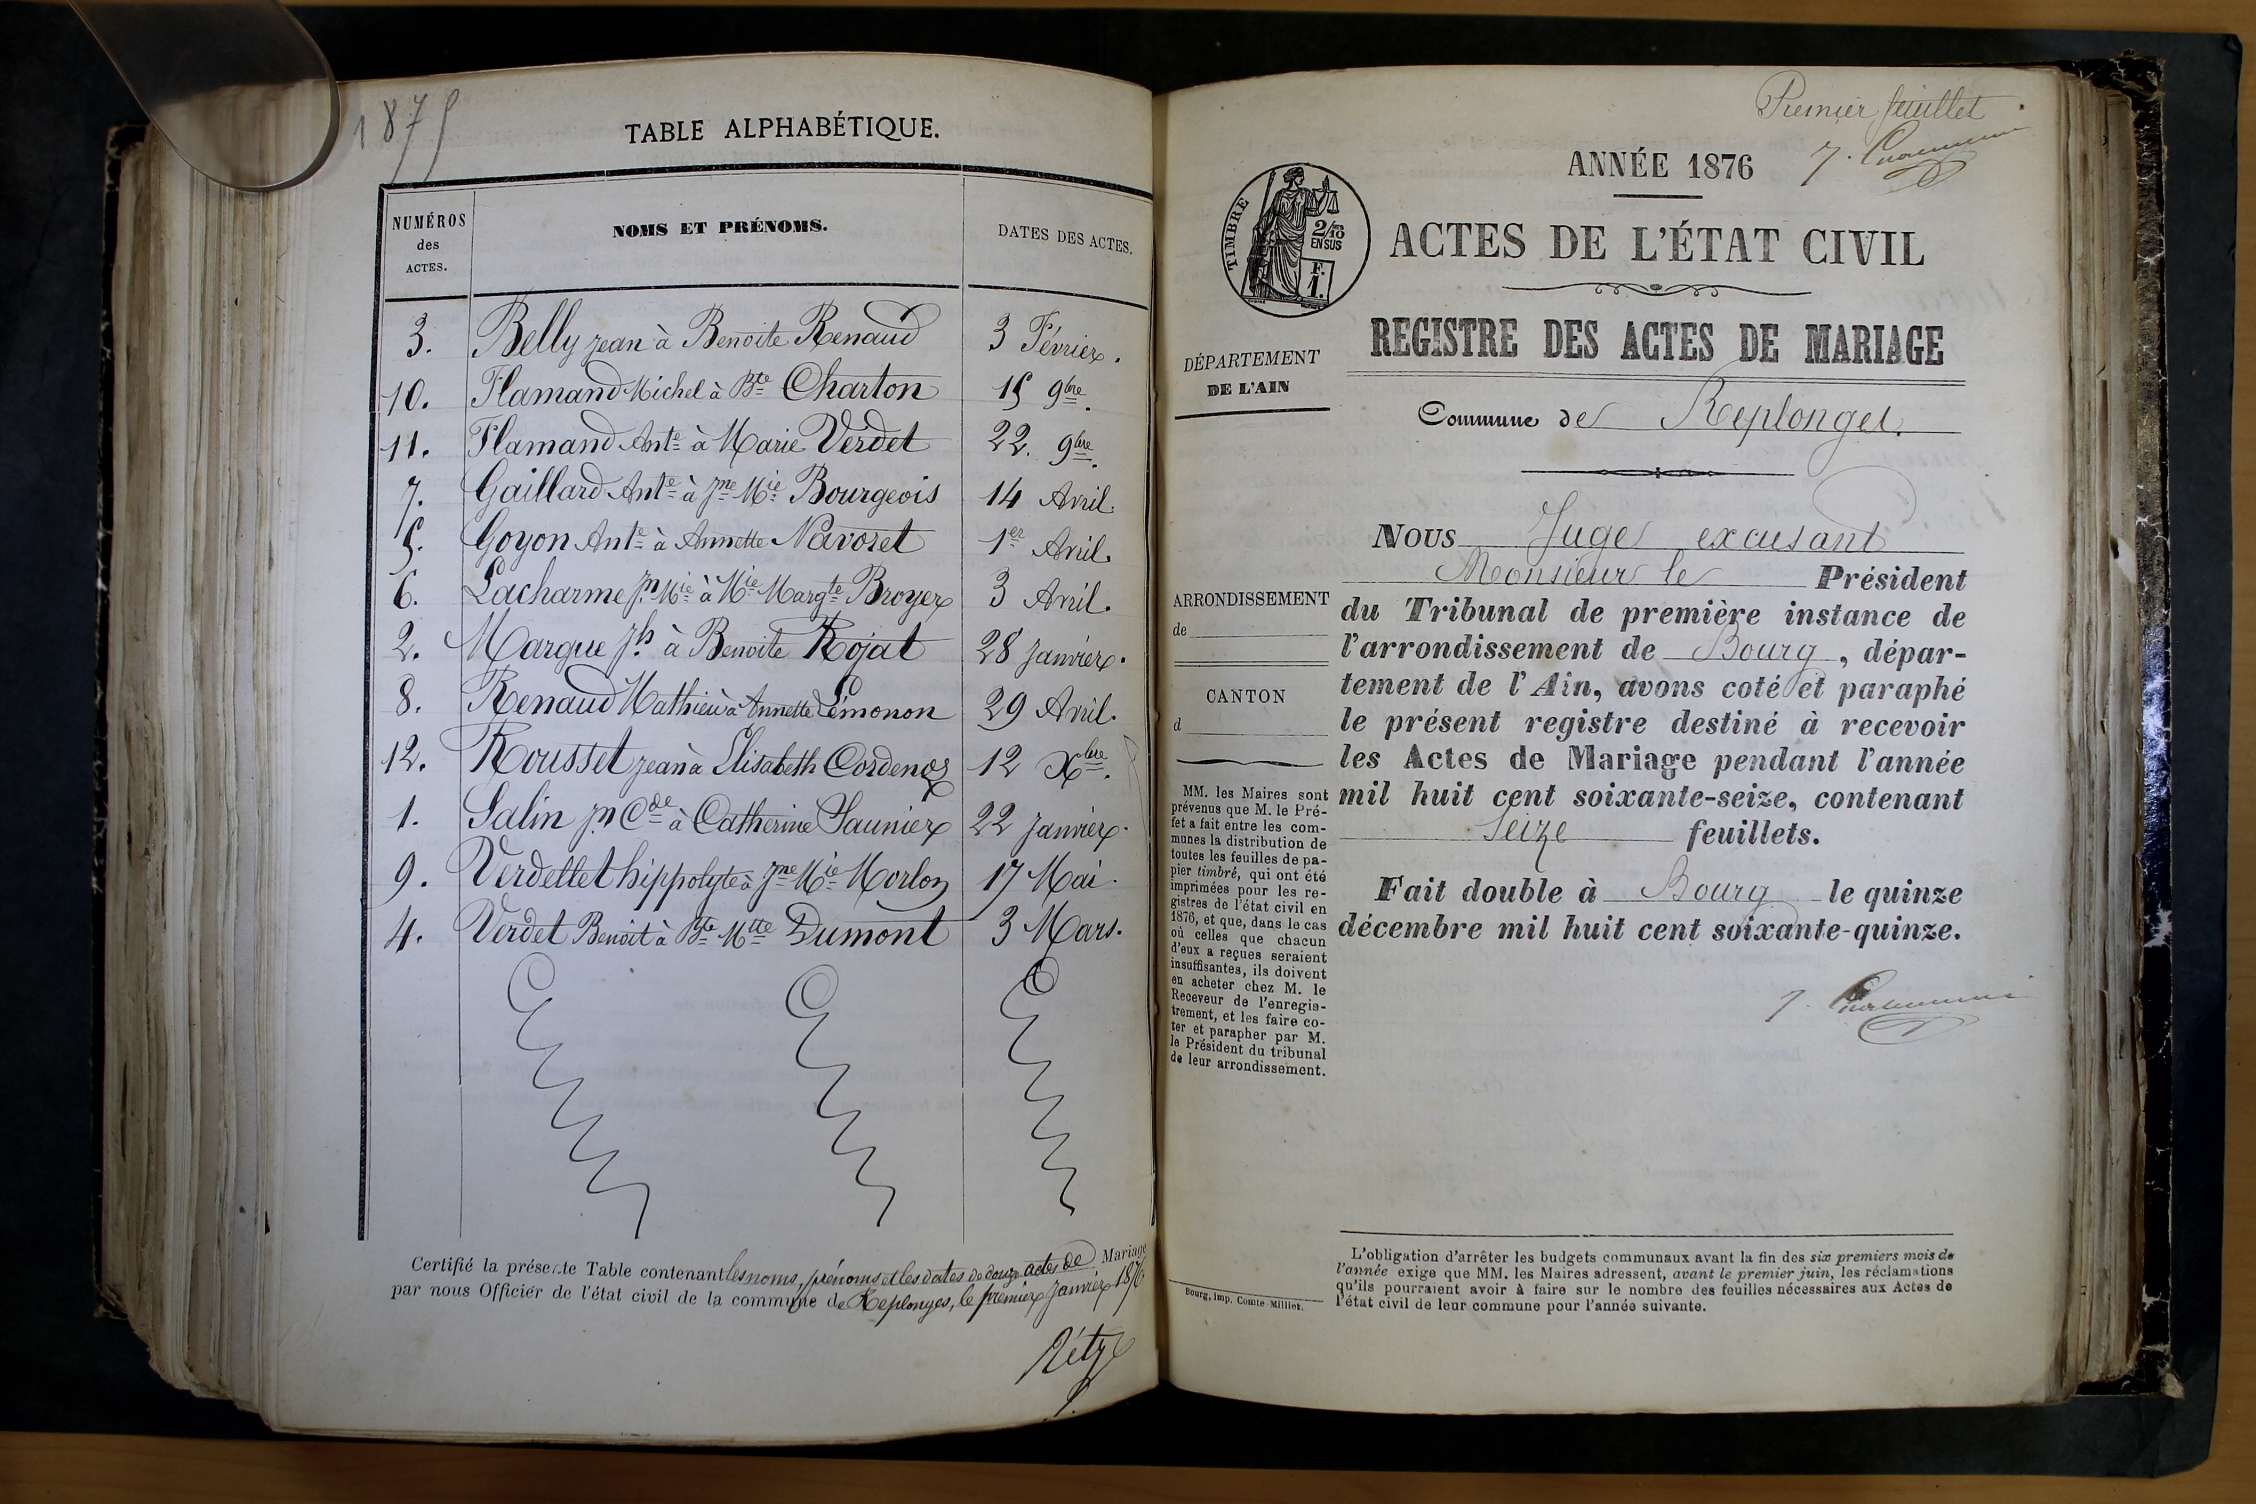 1875
TABLE ALPHABÉTIQUE.
NUMÉROS
des
ACTES.
NOMS ET PRÉNOMS.
DATES DES ACTES.
3. Belly jean à Benoite Renaud 3 Février.
10. Flamand Michel à Bte Charton 15 9bre.
11. Flamand Ante à Marie Verdet 22. 9bre.
7. Gaillard Ante à Jne Mie Bourgeois 14 Avril.
5. Goyon Ante à Annette Navoret 1er Avril.
6. Lacharme Jn Mie à Mie Margte Broyer 3 Avril.
2. Margue Jh à Benoite Rojat 28 janvier.
8. Renaud Mathieu à Annette Lémonon 29 Avril.
12. Rousset jean à Elisabeth Cordenoz 12 Xbre.
1. Salin Jn Cde à Catherine Saunier 22 janvier.
9. Verdellet hippolyte à Jne Mie Morlon 17 Mai.
4. Verdet Benoit à Bte Mtte Dumont 3 Mars.
Certifié la présente Table contenant les noms, prénoms et les dates de douze actes de Mariage
par nous Officier de l'état civil de la commune de Replonges, le premier janvier 1876
Premier feuillet.
ANNÉE 1876
TIMBRE
2/10
EN SUS
F.
1.
ACTES DE L'ÉTAT CIVIL
REGISTRE DES ACTES DE MARIAGE
DÉPARTEMENT
DE L'AIN
Commune de Replonges.
ARRONDISSEMENT
de
CANTON
d
MM. les Maires sont
prévenus que M. le Pré-
fet a fait entre les com-
munes la distribution de
toutes les feuilles de pa-
pier timbré, qui ont été
imprimées pour les re-
gistres de l'état civil en
1876, et que, dans le cas
où celles que chacun
d'eux a reçues seraient
insuffisantes, ils doivent
en acheter chez M. le
Receveur de l'enregis-
trement, et les faire co-
ter et parapher par M.
le Président du tribunal
de leur arrondissement.
Nous Juge excusant
Monsieur le Président
du Tribunal de première instance de
l'arrondissement de Bourg, dépar-
tement de l'Ain, avons coté et paraphé
le présent registre destiné à recevoir
les Actes de Mariage pendant l'année
mil huit cent soixante-seize, contenant
Seize feuillets.
Fait double à Bourg le quinze
décembre mil huit cent soixante-quinze.
Bourg, imp. Comte Milliet.
L'obligation d'arrêter les budgets communaux avant la fin des six premiers mois de
l'année exige que MM. les Maires adressent, avant le premier juin, les réclamations
qu'ils pourraient avoir à faire sur le nombre des feuilles nécessaires aux Actes de
l'état civil de leur commune pour l'année suivante.